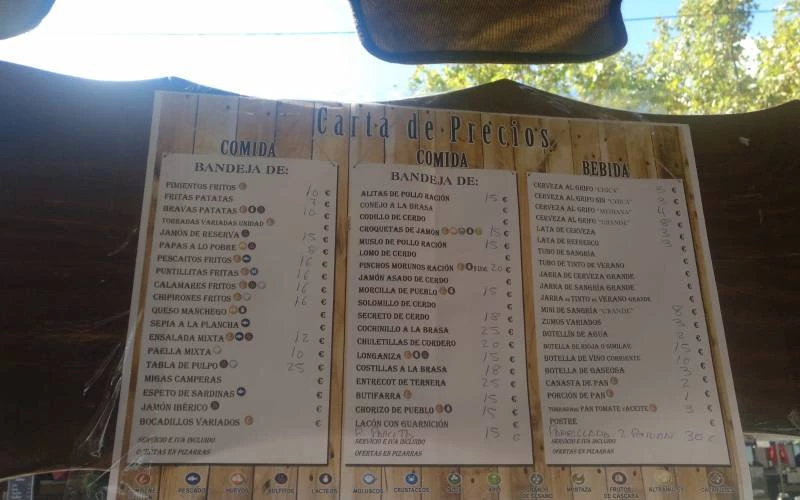 Carta de Precios
COMIDA
BANDEJA DE:
PIMIENTOS FRITOS 10 €
FRITAS PATATAS 7 €
BRAVAS PATATAS 10 €
TORRADAS VARIADAS UNIDAD €
JAMÓN DE RESERVA 15 €
PAPAS A LO POBRE 8 €
PESCAITOS FRITOS 16 €
PUNTILLITAS FRITAS 16 €
CALAMARES FRITOS 16 €
CHIPIRONES FRITOS 16 €
QUESO MANCHEGO €
SEPIA A LA PLANCHA €
ENSALADA MIXTA 12 €
PAELLA MIXTA 10 €
TABLA DE PULPO 25 €
MIGAS CAMPERAS €
ESPETO DE SARDINAS €
JAMÓN IBÉRICO €
BOCADILLOS VARIADOS €
SERVICIO E IVA INCLUIDO
OFERTAS EN PIZARRAS
COMIDA
BANDEJA DE:
ALITAS DE POLLO RACIÓN 15 €
CONEJO A LA BRASA €
CODILLO DE CERDO €
CROQUETAS DE JAMÓN 15 €
MUSLO DE POLLO RACIÓN 15 €
LOMO DE CERDO €
PINCHOS MORUNOS RACIÓN 20 €
JAMÓN ASADO DE CERDO €
MORCILLA DE PUEBLO 15 €
SOLOMILLO DE CERDO €
SECRETO DE CERDO 18 €
COCHINILLO A LA BRASA 25 €
CHULETILLAS DE CORDERO 20 €
LONGANIZA 15 €
COSTILLAS A LA BRASA 18 €
ENTRECOT DE TERNERA 25 €
BUTIFARRA 15 €
CHORIZO DE PUEBLO 15 €
LACÓN CON GUARNICIÓN €
15 €
SERVICIO E IVA INCLUIDO
OFERTAS EN PIZARRAS
BEBIDA
CERVEZA AL GRIFO "CHICA" 3 €
CERVEZA AL GRIFO SIN "CHICA" 3 €
CERVEZA AL GRIFO "MEDIANA" 4 €
CERVEZA AL GRIFO "GRANDE" 8 €
LATA DE CERVEZA 3 €
LATA DE REFRESCO 3 €
TUBO DE SANGRÍA €
TUBO DE TINTO DE VERANO €
JARRA DE CERVEZA GRANDE €
JARRA DE SANGRÍA GRANDE €
JARRA DE TINTO DE VERANO GRANDE €
MINI DE SANGRÍA "GRANDE" 8 €
ZUMOS VARIADOS 3 €
BOTELLÍN DE AGUA 2 €
BOTELLA DE RIOJA O SIMILAR 15 €
BOTELLA DE VINO CORRIENTE 10 €
BOTELLA DE GASEOSA 3 €
CANASTA DE PAN 2 €
PORCIÓN DE PAN 1 €
TORRADAS PAN TOMATE Y ACEITE 3 €
POSTRE €
30 €
SERVICIO E IVA INCLUIDO
OFERTAS EN PIZARRAS
PESCADO
HUEVOS
SULFITOS
LÁCTEOS
MOLUSCOS
CRUSTÁCEOS
SOJA
APIO
MOSTAZA
FRUTOS DE CÁSCARA
ALTRAMUCES